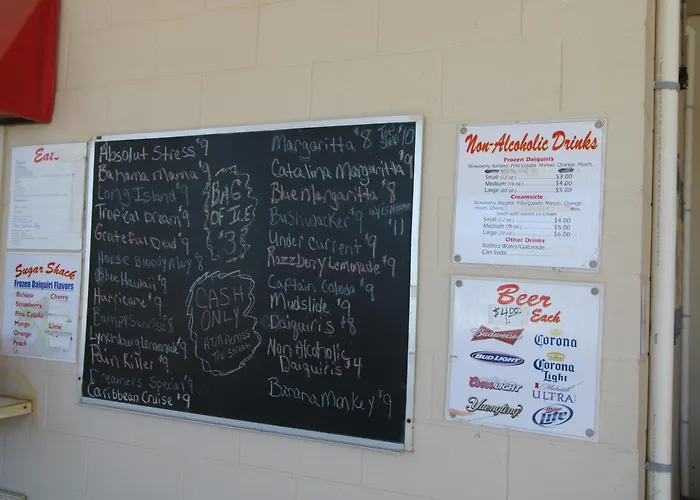 Eats
Sugar Shack
Frozen Daiquiri Flavors
Banana Cherry
Strawberry
Pina Colada
Mango Lime
Orange
Peach
Absolut Stress $9
Bahama Mama $9
Long Island $9
Tropical Dream $9
Grateful Dead $9
House Bloody Mary $8
Blue Hawaii $9
Hurricane $9
Bahama Sunrise $8
Lynchburg Lemonade $9
Pain Killer $9
Dreamers Special $9
Caribbean Cruise $9
BAG
OF ICE
$3
CASH
ONLY
ATM ACROSS
THE STREET
Margaritta $8
$10
Catalina Margaritta $9
Blue Margaritta $8
Bushwacker $9
$11
Under Current $9
Razzberry Lemonade $9
Captain Colada $9
Mudslide $9
Daiquiris $8
Non Alcoholic
Daiquiris $4
Banana Monkey $9
Non-Alcoholic Drinks
Frozen Daiquiris
Strawberry, Banana, Piña Colada, Mango, Orange, Peach,
Small (12 oz.) $3.00
Medium (16 oz.) $4.00
Large (20 oz.) $5.00
Creamsicle
Strawberry, Banana, Piña Colada, Mango, Orange,
Peach, Cherry
made with vanilla ice cream
Small (12 oz.) $4.00
Medium (16 oz.) $5.00
Large (20 oz.) $6.00
Other Drinks
Bottled Water/Gatorade
Can Soda
Beer
$4.00
Each
Budweiser
Corona
BUD LIGHT
Corona
Light
Coors LIGHT
Michelob
ULTRA
Yuengling
Miller
Lite